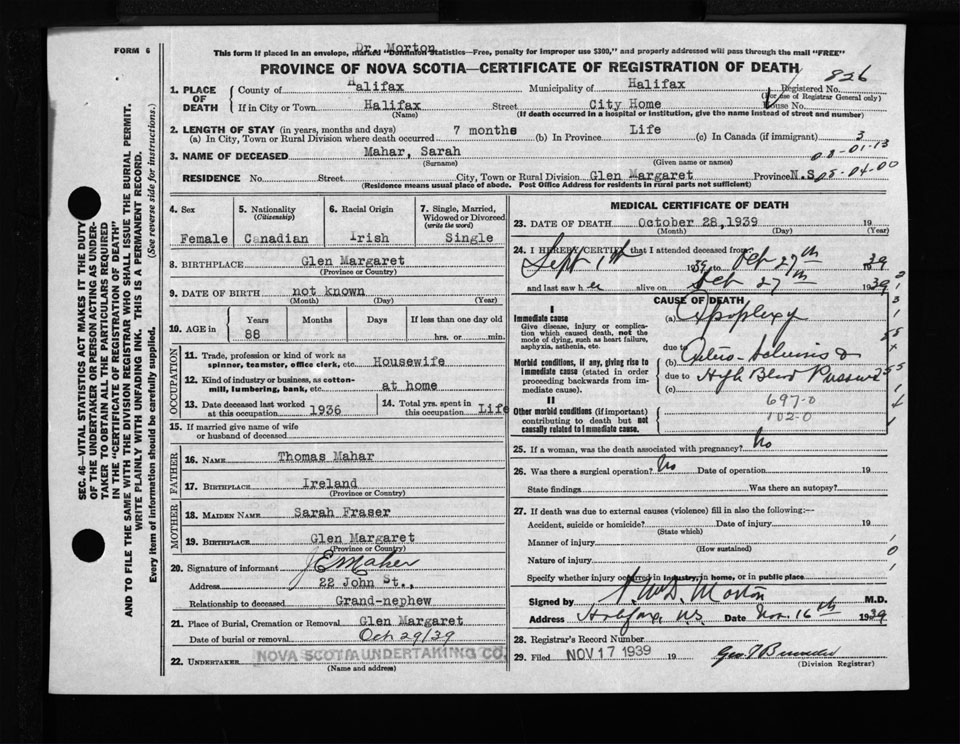 FORM 6
Dr. Morton
This form if placed in an envelope, marked "Dominion Statistics—Free, penalty for improper use $300," and properly addressed will pass through the mail "FREE"
PROVINCE OF NOVA SCOTIA—CERTIFICATE OF REGISTRATION OF DEATH
826
1. PLACE OF DEATH
County of Halifax Municipality of Halifax Registered No.
(For use of Registrar General only)
If in City or Town Halifax Street City Home House No.
(Name) (If death occurred in a hospital or institution, give the name instead of street and number)
2. LENGTH OF STAY (in years, months and days)
(a) In City, Town or Rural Division where death occurred 7 months (b) In Province Life (c) In Canada (if immigrant)
3
3. NAME OF DECEASED Mahar, Sarah
(Surname) (Given name or names)
03-01-13
RESIDENCE No. Street City, Town or Rural Division Glen Margaret Province N.S
05-04-00
(Residence means usual place of abode. Post Office Address for residents in rural parts not sufficient)
4. Sex
Female
5. Nationality
(Citizenship)
Canadian
6. Racial Origin
Irish
7. Single, Married, Widowed or Divorced
(write the word)
Single
8. BIRTHPLACE Glen Margaret
(Province or Country)
9. DATE OF BIRTH not known
(Month) (Day) (Year)
10. AGE in
Years Months Days If less than one day old
88 hrs. or min.
OCCUPATION
11. Trade, profession or kind of work as
spinner, teamster, office clerk, etc. Housewife
12. Kind of industry or business, as cotton-
mill, lumbering, bank, etc. at home
13. Date deceased last worked
at this occupation 1936
14. Total yrs. spent in
this occupation Life
15. If married give name of wife
or husband of deceased
FATHER
16. NAME Thomas Mahar
17. BIRTHPLACE Ireland
(Province or Country)
MOTHER
18. MAIDEN NAME Sarah Fraser
19. BIRTHPLACE Glen Margaret
(Province or Country)
20. Signature of informant J E Maher
Address 22 John St.,
Relationship to deceased Grand-nephew
21. Place of Burial, Cremation or Removal Glen Margaret
Date of burial or removal Oct 29/39
22. UNDERTAKER NOVA SCOTIA UNDERTAKING CO.
(Name and address)
MEDICAL CERTIFICATE OF DEATH
23. DATE OF DEATH October 28, 1939 19
(Month) (Day) (Year)
24. I HEREBY CERTIFY that I attended deceased from
Sept 1th 1939 to Oct 27th 1939
and last saw her alive on Oct 27th 1939
CAUSE OF DEATH
I
Immediate cause
Give disease, injury or complica-
tion which caused death, not the
mode of dying, such as heart failure,
asphyxia, asthenia, etc.
(a) Apoplexy
due to
Morbid conditions, if any, giving rise to
immediate cause (stated in order
proceeding backwards from im-
mediate cause).
(b) Arterio-Sclerosis &
due to High Blood Pressure
(c)
697-0
102-0
II
Other morbid conditions (if important)
contributing to death but not
causally related to immediate cause.
25. If a woman, was the death associated with pregnancy? No
26. Was there a surgical operation? No Date of operation 19
State findings Was there an autopsy?
27. If death was due to external causes (violence) fill in also the following:—
Accident, suicide or homicide? Date of injury 19
(State which)
Manner of injury
(How sustained)
Nature of injury
Specify whether injury occurred in industry, in home, or in public place
Signed by Morton M.D.
Address Halifax, N.S. Date Nov 16th 1939
28. Registrar's Record Number
29. Filed NOV 17 1939 19
(Division Registrar)
SEC. 46—VITAL STATISTICS ACT MAKES IT THE DUTY
OF THE UNDERTAKER OR PERSON ACTING AS UNDER-
TAKER TO OBTAIN ALL THE PARTICULARS REQUIRED
IN THE "CERTIFICATE OF REGISTRATION OF DEATH"
AND TO FILE THE SAME WITH THE DIVISION REGISTRAR WHO SHALL ISSUE THE BURIAL PERMIT.
WRITE PLAINLY WITH UNFADING INK. THIS IS A PERMANENT RECORD.
Every item of information should be carefully supplied. (See reverse side for instructions.)